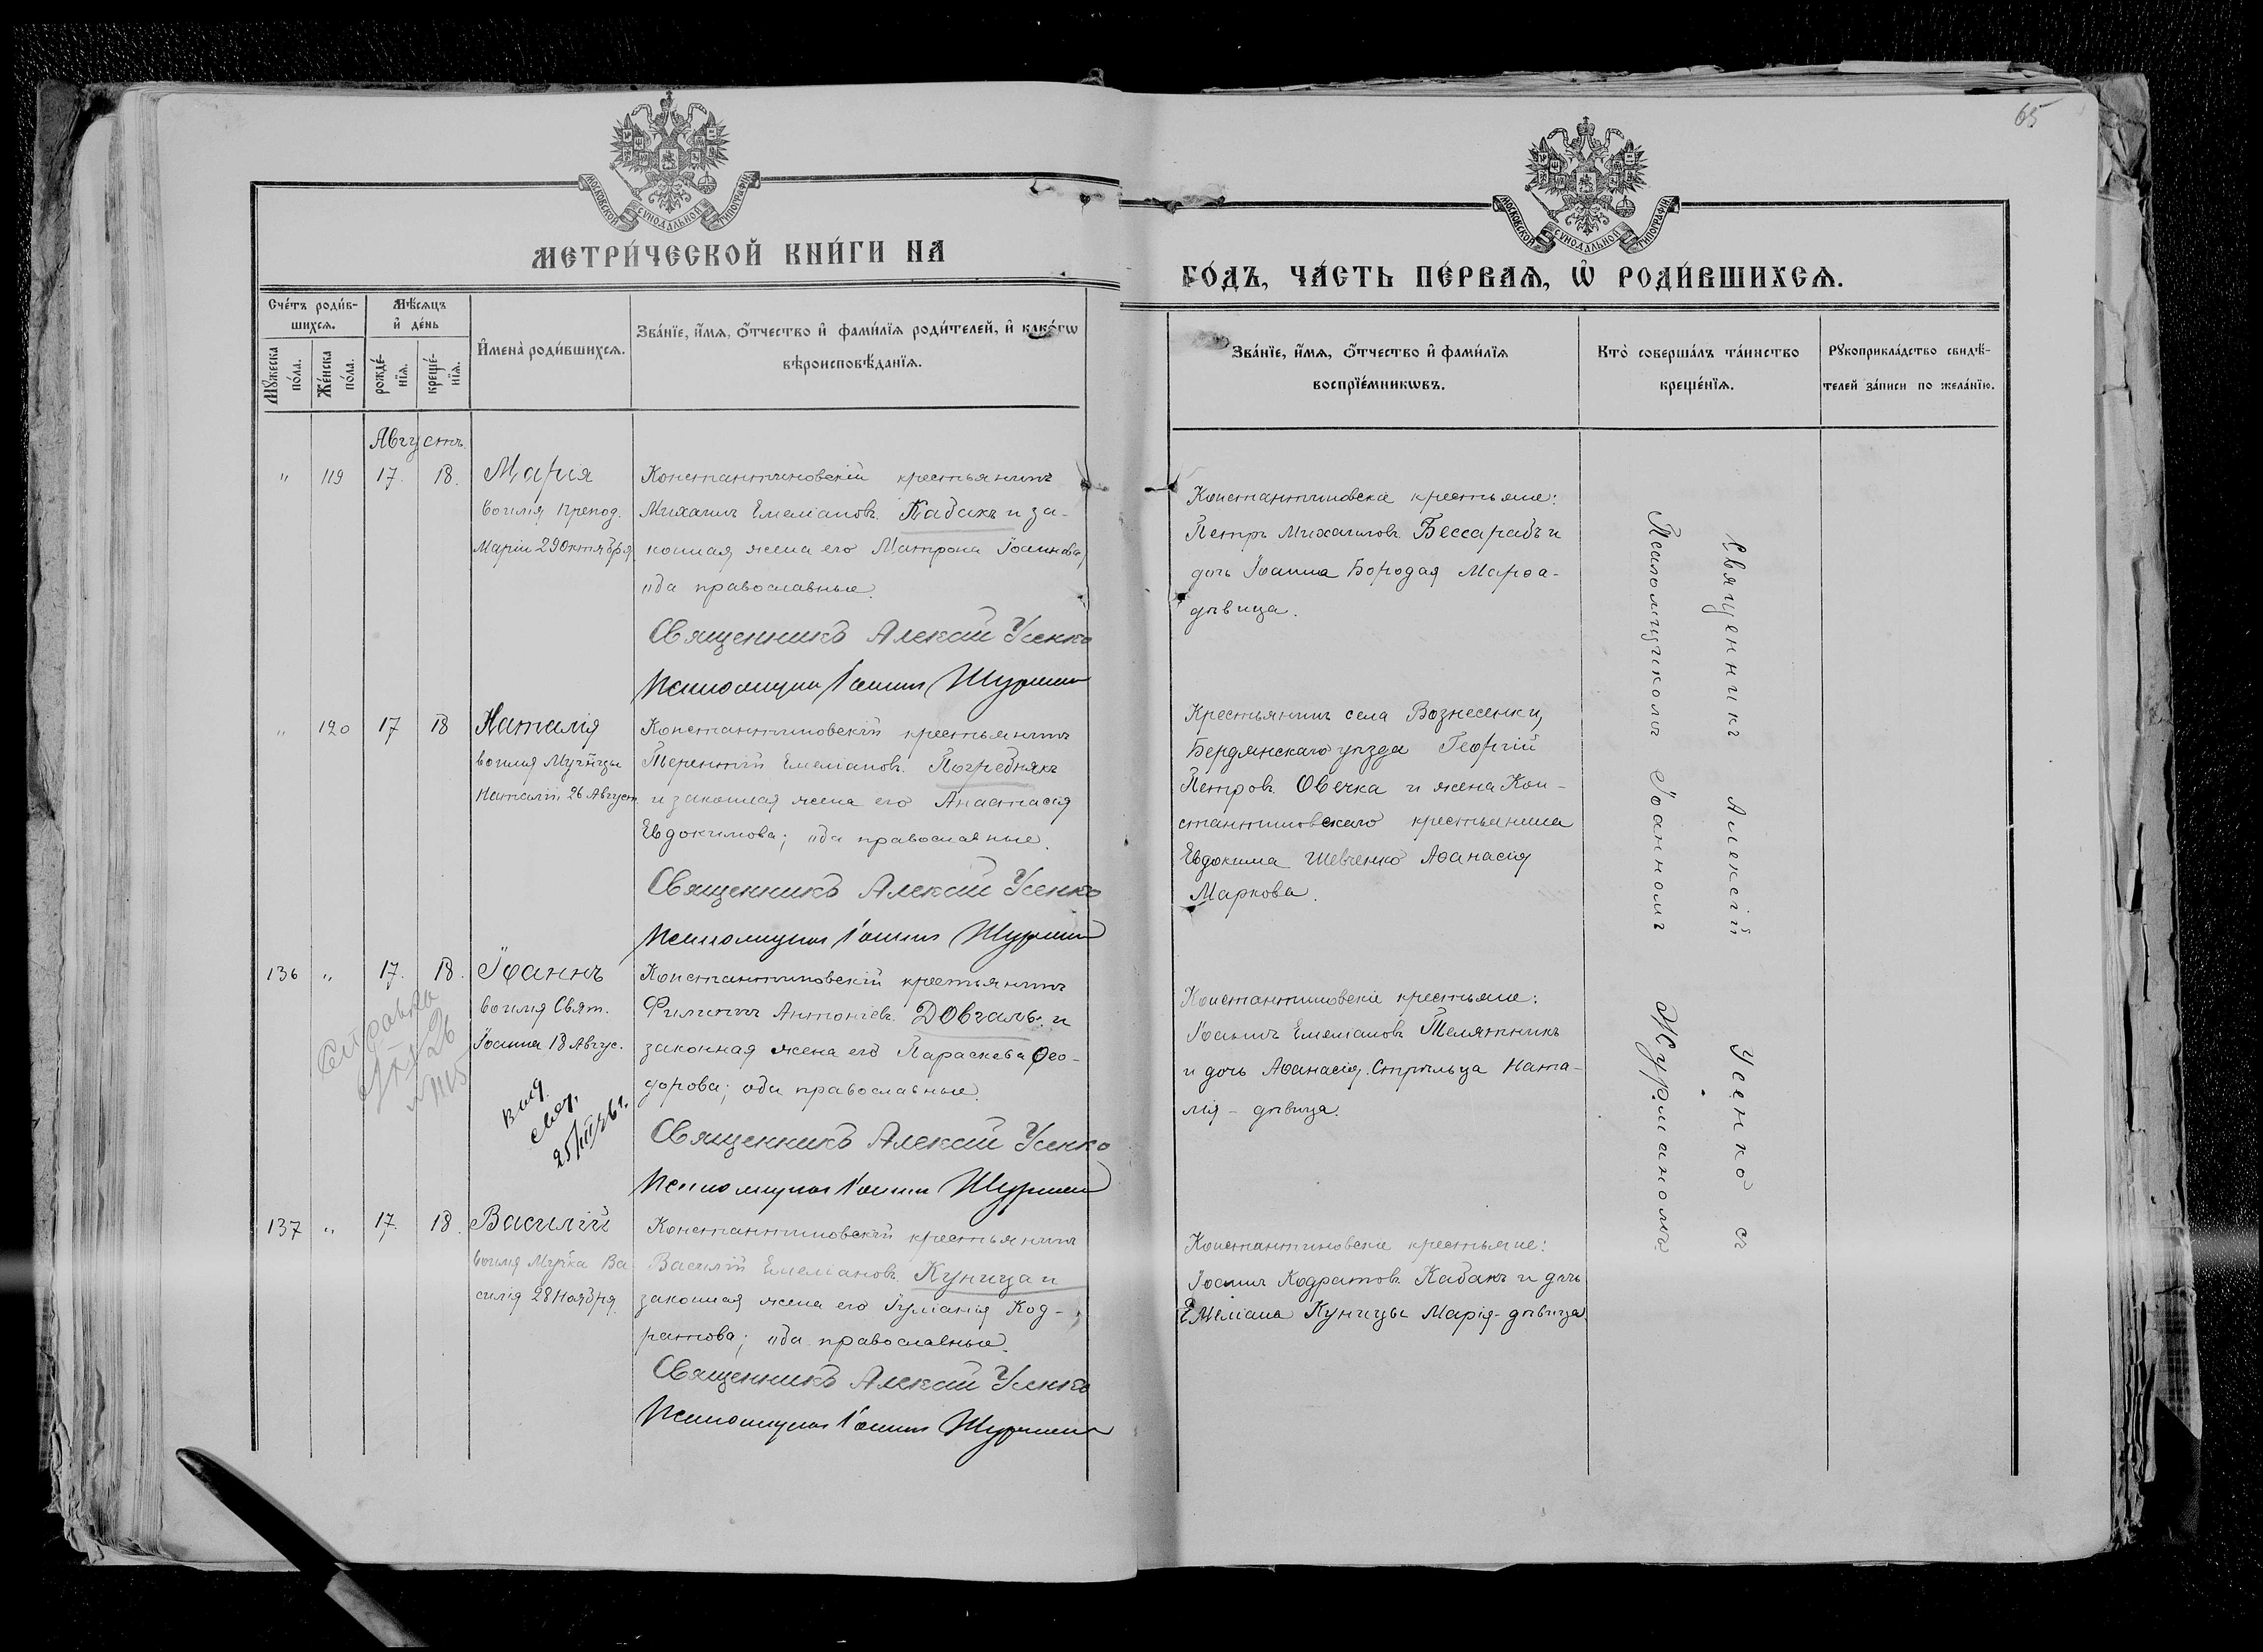 65
МОСКОВСКОЙ СУНОДАЛЬНОЙ ТИПОГРАФІИ
МЕТРИ́ЧЕСКОЙ КНИ́ГИ НА
МОСКОВСКОЙ СУНОДАЛЬНОЙ ТИПОГРАФІИ
ГО́ДЪ, ЧА́СТЬ ПЕ́РВАѦ, Ѡ РОДИ́ВШИХСѦ.
Сче́тъ роди́в-
шихсѧ.
Мѣ́сѧцъ
и҆ де́нь
Мꙋ́жеска
по́ла.
Же́нска
по́ла.
рожде́-
нїѧ.
креще́-
нїѧ.
И҆мена̀ роди́вшихсѧ.
Зва́нїе, и҆́мѧ, ѻ҆́тчество и҆ фами́лїѧ роди́телей, и҆ како́гѡ
вѣроисповѣ́данїѧ.
Зва́нїе, и҆́мѧ, ѻ҆́тчество и҆ фами́лїѧ
воспрїе́мникѡвъ.
Кто̀ соверша́лъ та́инство
креще́нїѧ.
Рꙋкоприкла́дство свидѣ́-
телей за́писи по жела́нїю.
Августъ.
" 119 17. 18. Марія
во имя Препод.
Маріи 29 Октября.
Константиновскій крестьянинъ
Михаилъ Емеліановъ Кабакъ и за-
конная жена его Матрона Іоаннова,
оба православные.
Священникъ Алексій Усенко
Псаломщикъ Іоаннъ Журманъ
Константиновскіе крестьяне:
Петръ Михаиловъ Бессарабъ и
дочь Іоанна Бородая Марѳа-
дѣвица.
" 120 17 18 Наталія
во имя Муч-цы
Наталіи 26 Август.
Константиновскій крестьянинъ
Терентій Емеліановъ Погребнякъ
и законная жена его Анастасія
Евдокимова; оба православные.
Священникъ Алексій Усенко
Псаломщикъ Іоаннъ Журманъ
Крестьянинъ села Вознесенки,
Бердянскаго уѣзда Георгій
Петровъ Овечка и жена Кон-
стантиновскаго крестьянина
Евдокима Шевченко Аѳанасія
Маркова.
136 " 17. 18. Іоаннъ
во имя Свят.
Іоанна 18 Авгус.
Справка
26
выд.
свид.
25/III 26 г.
Константиновскій крестьянинъ
Филиппъ Антоніевъ Довгаль и
законная жена его Параскева Ѳео-
дорова; оба православные.
Священникъ Алексій Усенко
Псаломщикъ Іоаннъ Журманъ
Константиновскіе крестьяне:
Іоаннъ Емеліановъ Телятникъ
и дочь Аѳанасія Стрѣльца Ната-
лія - дѣвица.
137 " 17. 18. Василій
во имя Муч-ка Ва-
силія 28 Ноября.
Константиновскій крестьянинъ
Василій Емеліановъ Куница и
законная жена его Іуліанія Код-
ратова; оба православные.
Священникъ Алексій Усенко
Псаломщикъ Іоаннъ Журманъ
Константиновскіе крестьяне:
Іоаннъ Кодратовъ Кабакъ и дочь
Емеліана Куницы Марія-дѣвица.
Священникъ Алексій Усенко съ
Псаломщикомъ Іоанномъ Журманомъ.